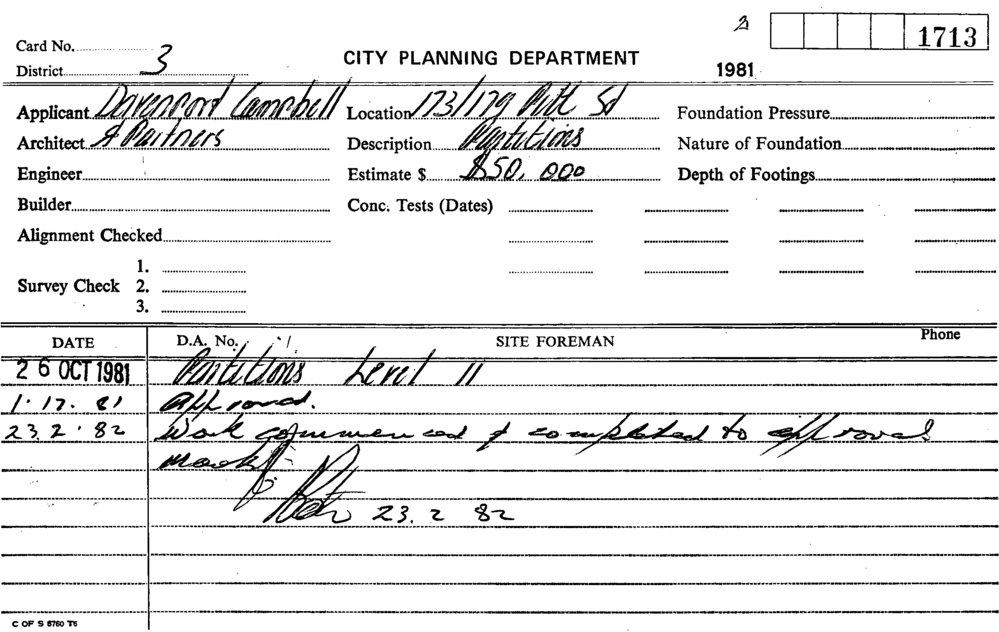 3 1713
Card No.
District 3
CITY PLANNING DEPARTMENT
1981
Applicant Davenport Campbell
Location 173/179 Pitt St
Foundation Pressure
Architect & Partners
Description Partitions
Nature of Foundation
Engineer
Estimate $ $50,000
Depth of Footings
Builder
Conc. Tests (Dates)
Alignment Checked
1.
Survey Check 2.
3.
DATE D.A. No. SITE FOREMAN Phone
26 OCT 1981 Partitions Level 11
1.12.81 Approved.
23.2.82 Work commenced & completed to approval
23.2 82
C OF S 5760 T6